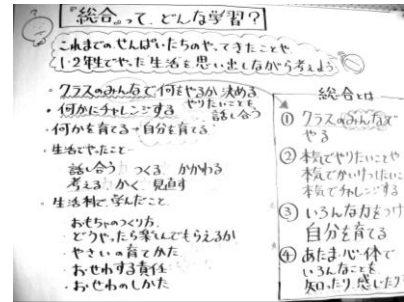 『総合』って、どんな学習？
これまでのせんぱいたちのやってきたことや
1・2年生でやった生活を思い出しながら考えよう
・クラスのみんなで何をやるか決める
・何かにチャレンジする やりたいことを話し合う
・何かを育てる→自分を育てる
・生活でやったこと
話し合う つくる かかわる
考える かく 見直す
・生活科で学んだこと
・おもちゃのつくり方
・どうやったら楽しんでもらえるか
・やさいの育てかた
・おせわする責任
・おせわのしかた
総合とは
① クラスのみんなで
やる
② 本気でやりたいことや
本気でかいけつしたい
本気でチャレンジする
③ いろんな力をつけ
自分を育てる
④ あたま・心・体で
いろんなことを
知ったり、感じたり